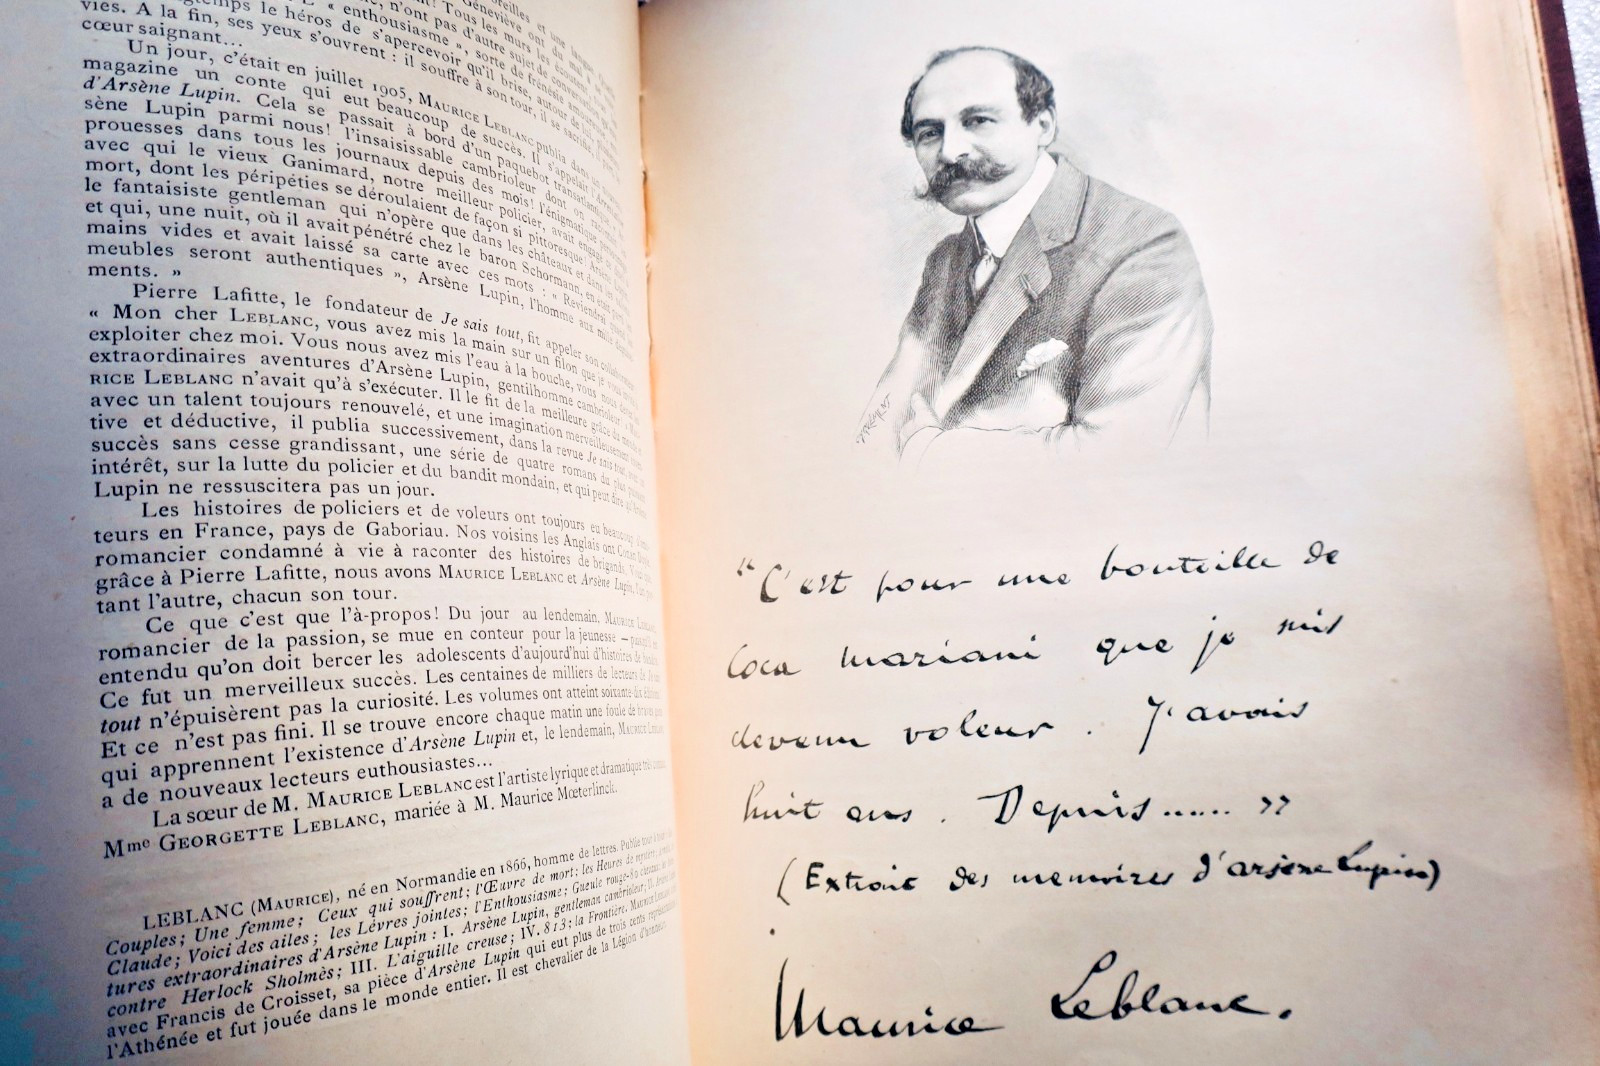 vies. A la fin, ses yeux s'ouvrent : il souffre à son tour, il se sacrifie, il
cœur saignant...
Un jour, c'était en juillet 1905, MAURICE LEBLANC publia dans un
magazine un conte qui eut beaucoup de succès. Il s'appelait l'Arrestation
d'Arsène Lupin. Cela se passait à bord d'un paquebot transatlantique
sène Lupin parmi nous! l'insaisissable cambrioleur dont on
prouesses dans tous les journaux depuis des mois! l'énigmatique
avec qui le vieux Ganimard, notre meilleur policier, avait engagé
mort, dont les péripéties se déroulaient de façon si pittoresque!
le fantaisiste gentleman qui n'opère que dans les châteaux et dans les
et qui, une nuit, où il avait pénétré chez le baron Schormann, en était
mains vides et avait laissé sa carte avec ces mots : « Reviendrai quand les
meubles seront authentiques », Arsène Lupin, l'homme aux mille
ments. »
Pierre Lafitte, le fondateur de Je sais tout, fit appeler son collaborateur
« Mon cher LEBLANC, vous avez mis la main sur un filon que je
exploiter chez moi. Vous nous avez mis l'eau à la bouche, vous nous
extraordinaires aventures d'Arsène Lupin, gentilhomme cambrioleur!
RICE LEBLANC n'avait qu'à s'exécuter. Il le fit de la meilleure grâce du
avec un talent toujours renouvelé, et une imagination merveilleusement
tive et déductive, il publia successivement, dans la revue Je sais tout,
succès sans cesse grandissant, une série de quatre romans du plus
intérêt, sur la lutte du policier et du bandit mondain, et qui peut dire
Lupin ne ressuscitera pas un jour.
Les histoires de policiers et de voleurs ont toujours eu beaucoup
teurs en France, pays de Gaboriau. Nos voisins les Anglais ont Conan
romancier condamné à vie à raconter des histoires de brigands.
grâce à Pierre Lafitte, nous avons MAURICE LEBLANC et Arsène Lupin,
tant l'autre, chacun son tour.
Ce que c'est que l'à-propos! Du jour au lendemain, MAURICE
romancier de la passion, se mue en conteur pour la jeunesse —
entendu qu'on doit bercer les adolescents d'aujourd'hui d'histoires de
Ce fut un merveilleux succès. Les centaines de milliers de lecteurs de Je sais
tout n'épuisèrent pas la curiosité. Les volumes ont atteint
Et ce n'est pas fini. Il se trouve encore chaque matin une foule de
qui apprennent l'existence d'Arsène Lupin et, le lendemain, MAURICE LEBLANC
a de nouveaux lecteurs euthousiastes...
La sœur de M. MAURICE LEBLANC est l'artiste lyrique et dramatique
Mme GEORGETTE LEBLANC, mariée à M. Maurice Mœterlinck.
LEBLANC (MAURICE), né en Normandie en 1866, homme de lettres. Publie
Couples; Une femme; Ceux qui souffrent; l'Œuvre de mort; les Heures de mystère;
Claude; Voici des ailes; les Lèvres jointes; l'Enthousiasme; Gueule rouge-80 chevaux;
tures extraordinaires d'Arsène Lupin : I. Arsène Lupin, gentleman cambrioleur; II.
contre Herlock Sholmès; III. L'aiguille creuse; IV. 813; la Frontière. MAURICE LEBLANC
avec Francis de Croisset, sa pièce d'Arsène Lupin qui eut plus de trois cents représentations
l'Athénée et fut jouée dans le monde entier. Il est chevalier de la Légion d'honneur.
"C'est pour une bouteille de
Coca Mariani que je suis
devenu voleur. J'avais
huit ans. Depuis...... "
(Extrait des memoires d'arsène Lupin)
Maurice Leblanc.